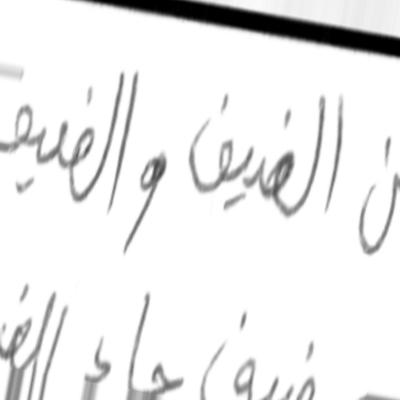 الضيف والضيف
ضيف جاء